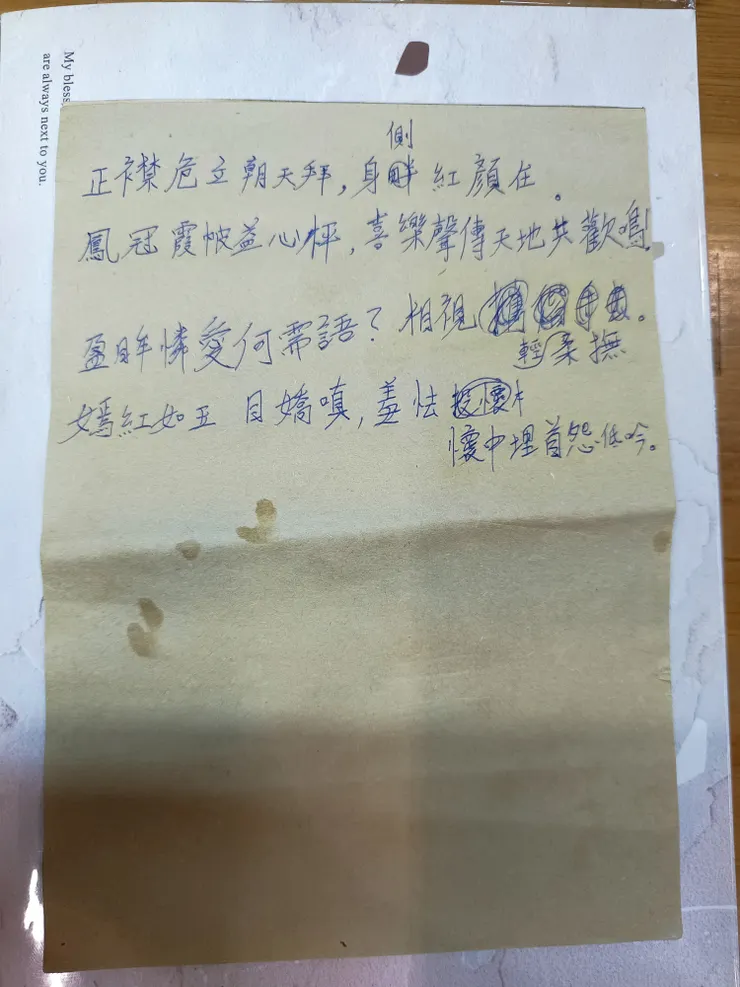 My bless
are always next to you.
側
正襟危立朝天拜，身畔紅顏在。
鳳冠霞帔益心怦，喜樂聲傳天地共歡鳴！
盈眸憐愛何需語？相視
輕柔撫。
嫣紅如玉 目嬌嗔，羞怯投懷
懷中埋首怨低吟。